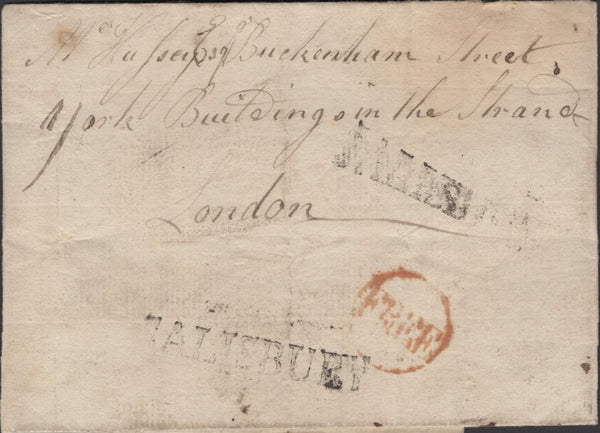 Hussey Esqr Buckenham Street
York Buildings in the Strand
London
SALISBURY
FREE
SALISBURY